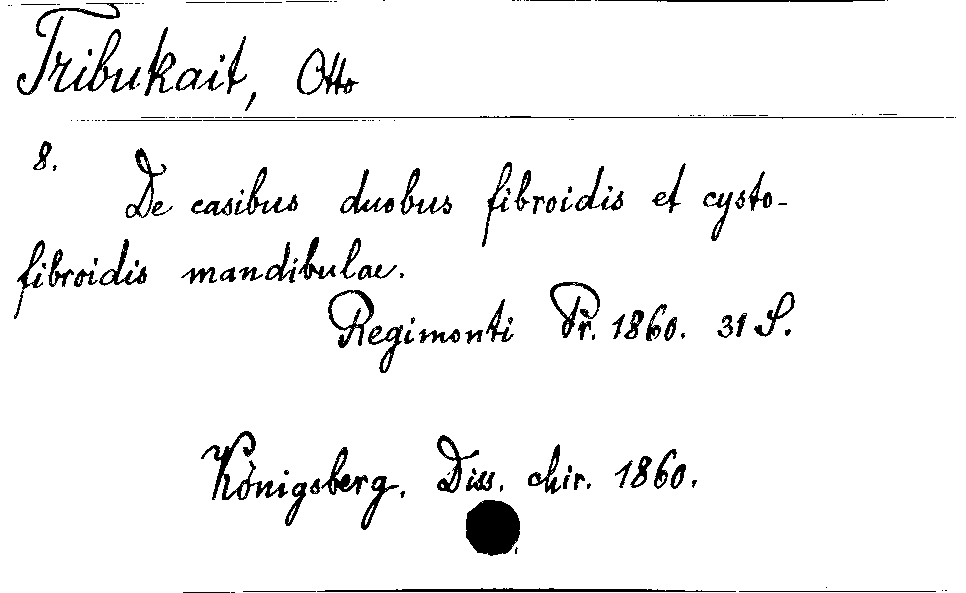 Tribukait, Otto
8.
De casibus duobus fibroidis et cysto-
fibroidis mandibulae.
Regimonti Pr. 1860. 31 S.
Königsberg. Diss. chir. 1860.